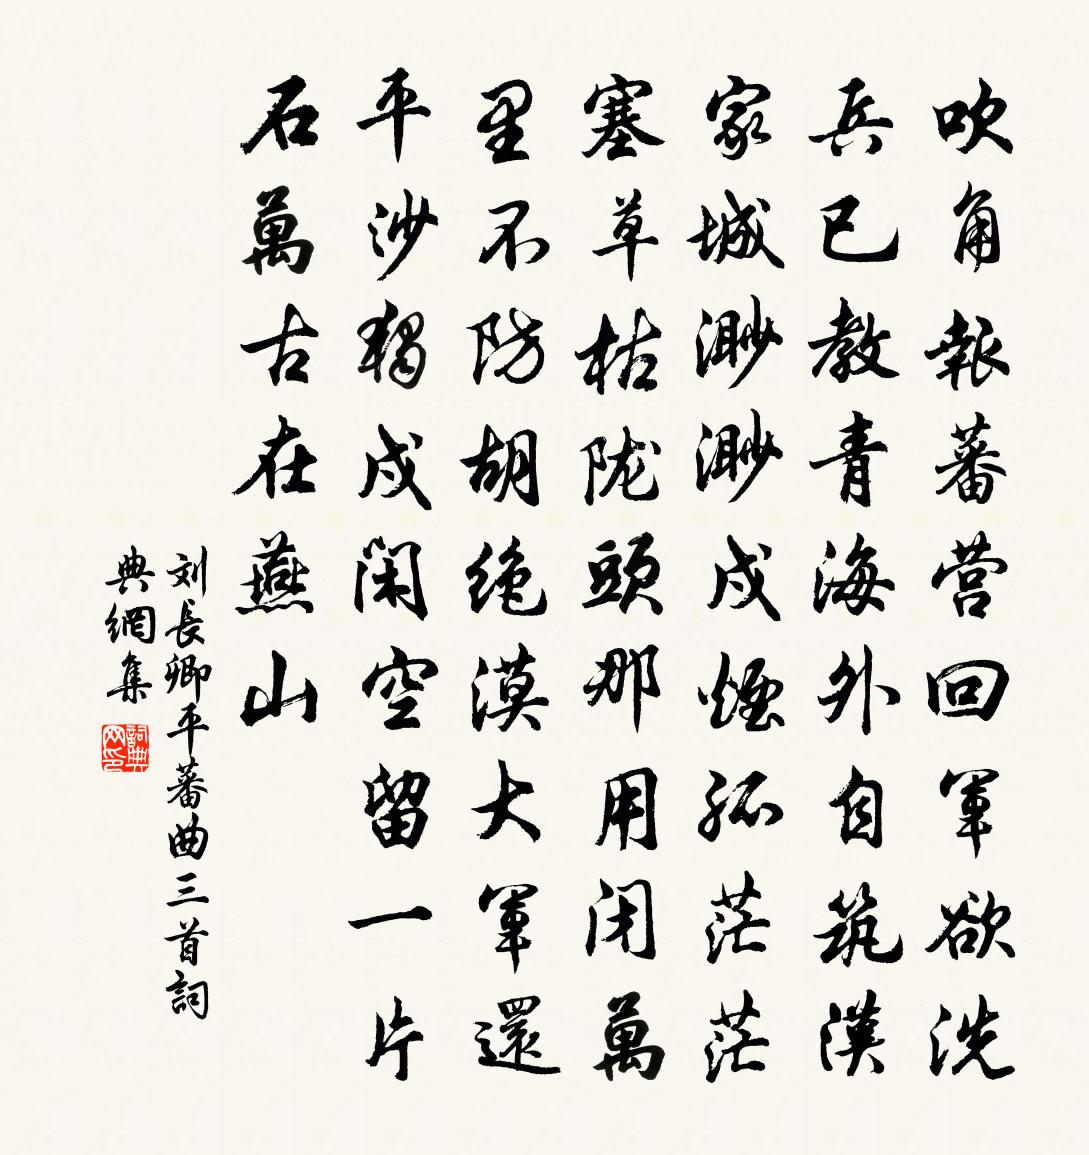 吹角報蕃营回軍欲洗
兵已教青海外自筑漢
家城渺渺戍煙孤茫茫
塞草枯陇頭那用闭萬
里不防胡绝漠大軍還
平沙獨戍闲空留一片
石萬古在燕山
刘長卿平蕃曲三首詞
典網集
詞典网印